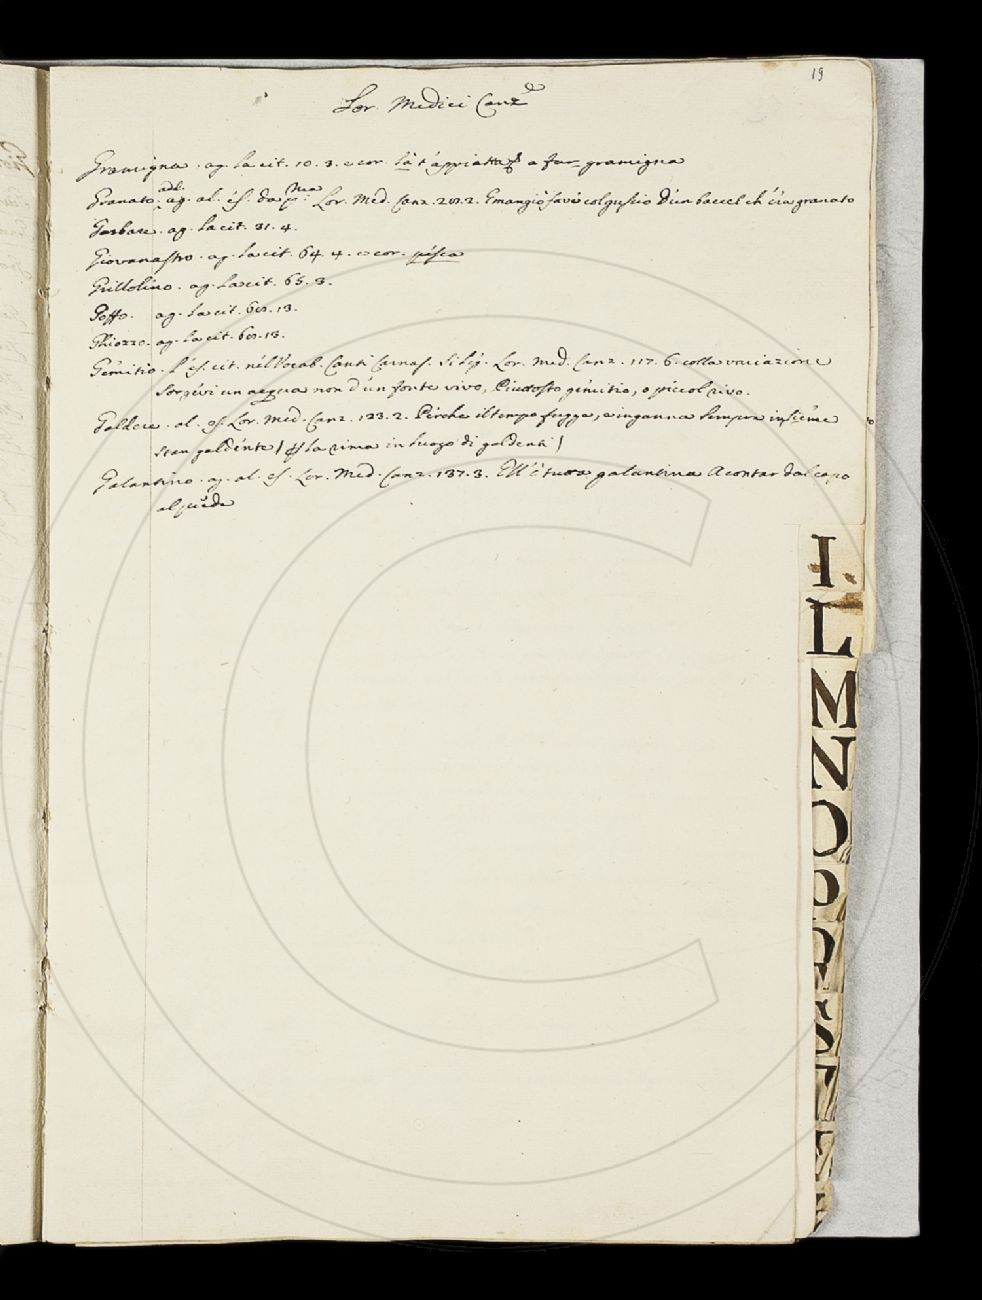 19
Lor. Medici Canz.e
Gramigna. ag. la cit. 10. 3. e cor. là t'appiatta a far gramigna
Granato. add. ag. al. es. da p. Nea Lor. Med. Canz. 20. 2. E mangiò fave col guscio D'un baccel ch'era granato
Garbare. ag. la cit. 31. 4.
Giovanastro. ag. la cit. 64. 4. e cor. pésca
Grillolino. ag. la cit. 65. 3.
Goffo. ag. la cit. 60. 13.
Ghiozzo. ag. la cit. 60. 13.
Gémitio. l'es. cit. nel Vocab. Canti Carnas. si leg. Lor. Med. Canz. 117. 6. colla variazione
Sorgévi un acqua non d'un fonte vivo, Piuttosto gémitio, o piccol rivo.
Galdere. al. es. Lor. Med. Canz. 123. 2. Perche il tempo fugge, e inganna Sempre insiéme
stan galdénte / la rima in luogo di galdenti /
Galantino. ag. al. es. Lor. Med. Canz. 137. 3. Ell'è tutta galantina A contar dal capo
al piede
I
L
M
N
O
P
Q
S
T